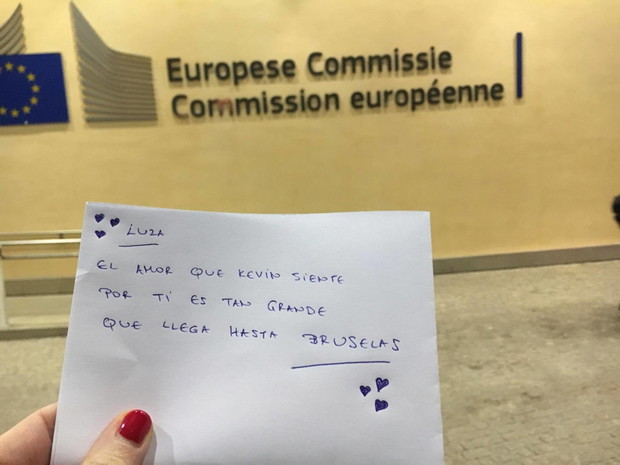 Europese Commissie
Commission européenne
LUZA
EL AMOR QUE KEVIN SIENTE
POR TI ES TAN GRANDE
QUE LLEGA HASTA BRUSELAS